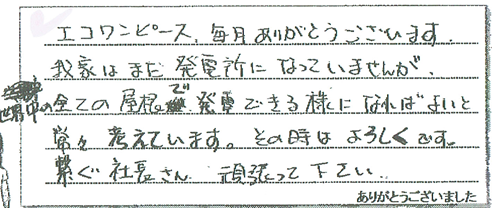 エコワンピース、毎月ありがとうございます。
我家はまだ発電所になっていませんが、
世界中の全ての屋根で発電できる様になればよいと
常々考えています。その時はよろしくです。
繋ぐ社長さん 頑張って下さい
ありがとうございました